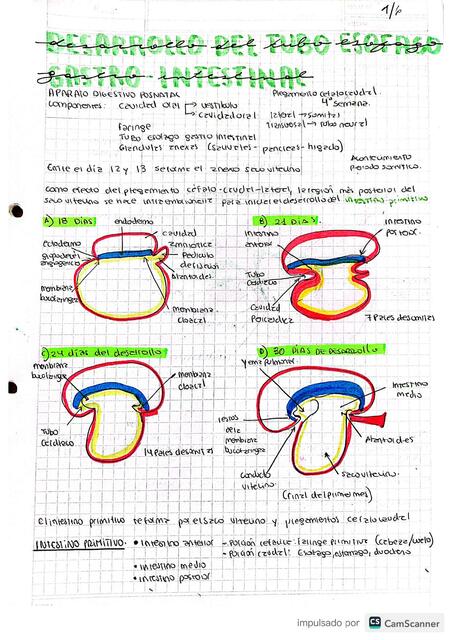 1/6
DESARROLLO DEL TUBO ESOFAGO
GASTRO-INTESTINAL
APARAJO DIGESTIVO POSNATAL
Componentes: cavidad oral → vestibulo
→ cavidad oral
Faringe
TUBO esofago gastro intestinal
Glandulas anexas (salivales - pancreas - higado)
Plegamento cefalocaudal
4° semana.
lateral → somitas
Transversal → tubo neural
Entre el día 12 y 13 se forma el anexo saco vitelino
Acontecimiento
Periodo somitico.
como efecto del plegamento céfalo-caudal-lateral, la región más posterior del
saco vitelino se hace intraembrionaria para iniciar el desarrollo del intestino primitivo
A) 18 DIAS
endodermo
cavidad
amniotica
Ectodermo
Pediculo
Alantoides
membrana
bucofaringea
membrana
cloacal
B) 21 DIAS.
intestino
anterior
intestino
Posterior
Tubo
Cardiaco
Cavidad
Pericardica
7 Pares de somitas
C) 24 días del desarrollo
membrana
bucofaringea
membrana
cloacal
Tubo
Cardiaco
14 Pares de somitas
D) 30 DÍAS DE DESARROLLO
yema pulmonar
intestino
medio
restos
de la
membrana
bucofaringea
Alantoides
conducto
vitelino
saco vitelino.
(Final del primer mes)
El intestino primitivo se forma por el saco vitelino y plegamientos cefalo caudal
INTESTINO PRIMITIVO: • Intestino anterior - Porción cefalica: Faringe primitiva (cabeza/cuello)
- Porción caudal: Esofago, estomago, duodeno
• Intestino medio
• Intestino posterior
impulsado por CS CamScanner